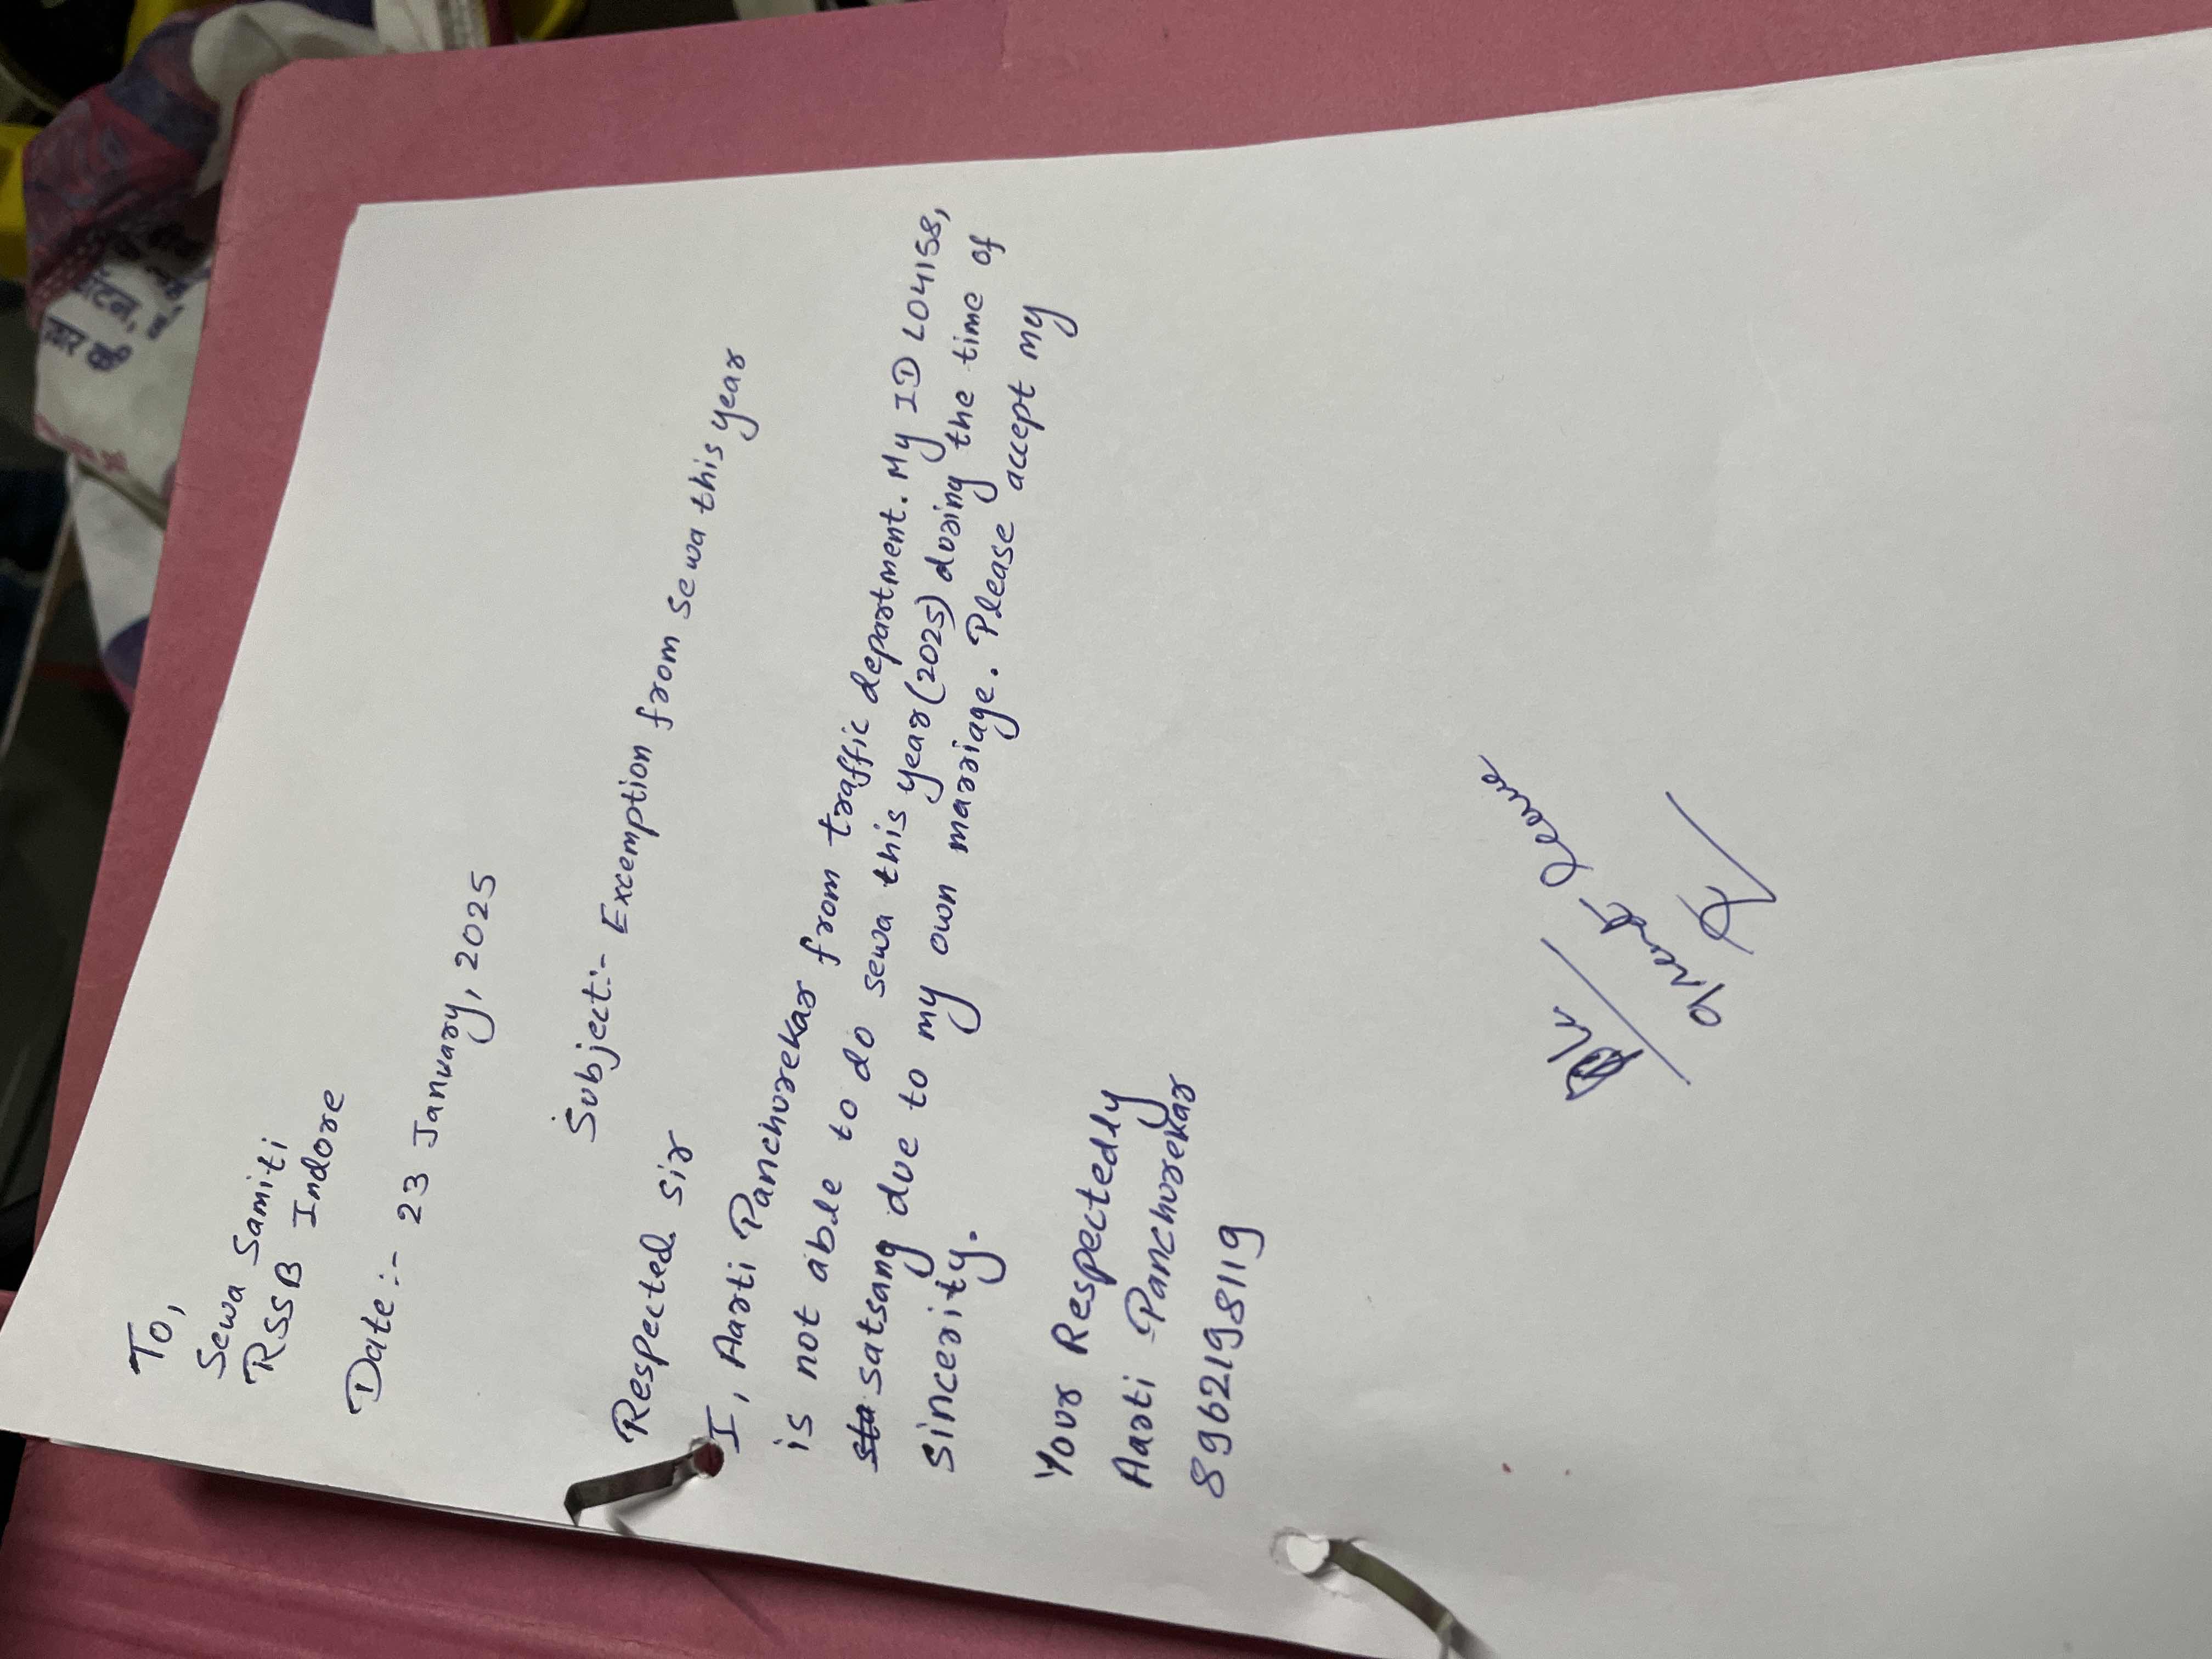 To,
Sewa Samiti
RSSB Indore
Date:- 23 January, 2025
Subject:- Excemption from sewa this year
Respected sir
I, Aarti Panchurekar from traffic department. My ID L04158,
is not able to do sewa this year(2025) during the time of
satsang due to my own marriage. Please accept my
sincerity.
Your Respectedly
Aarti Panchurekar
8962198119